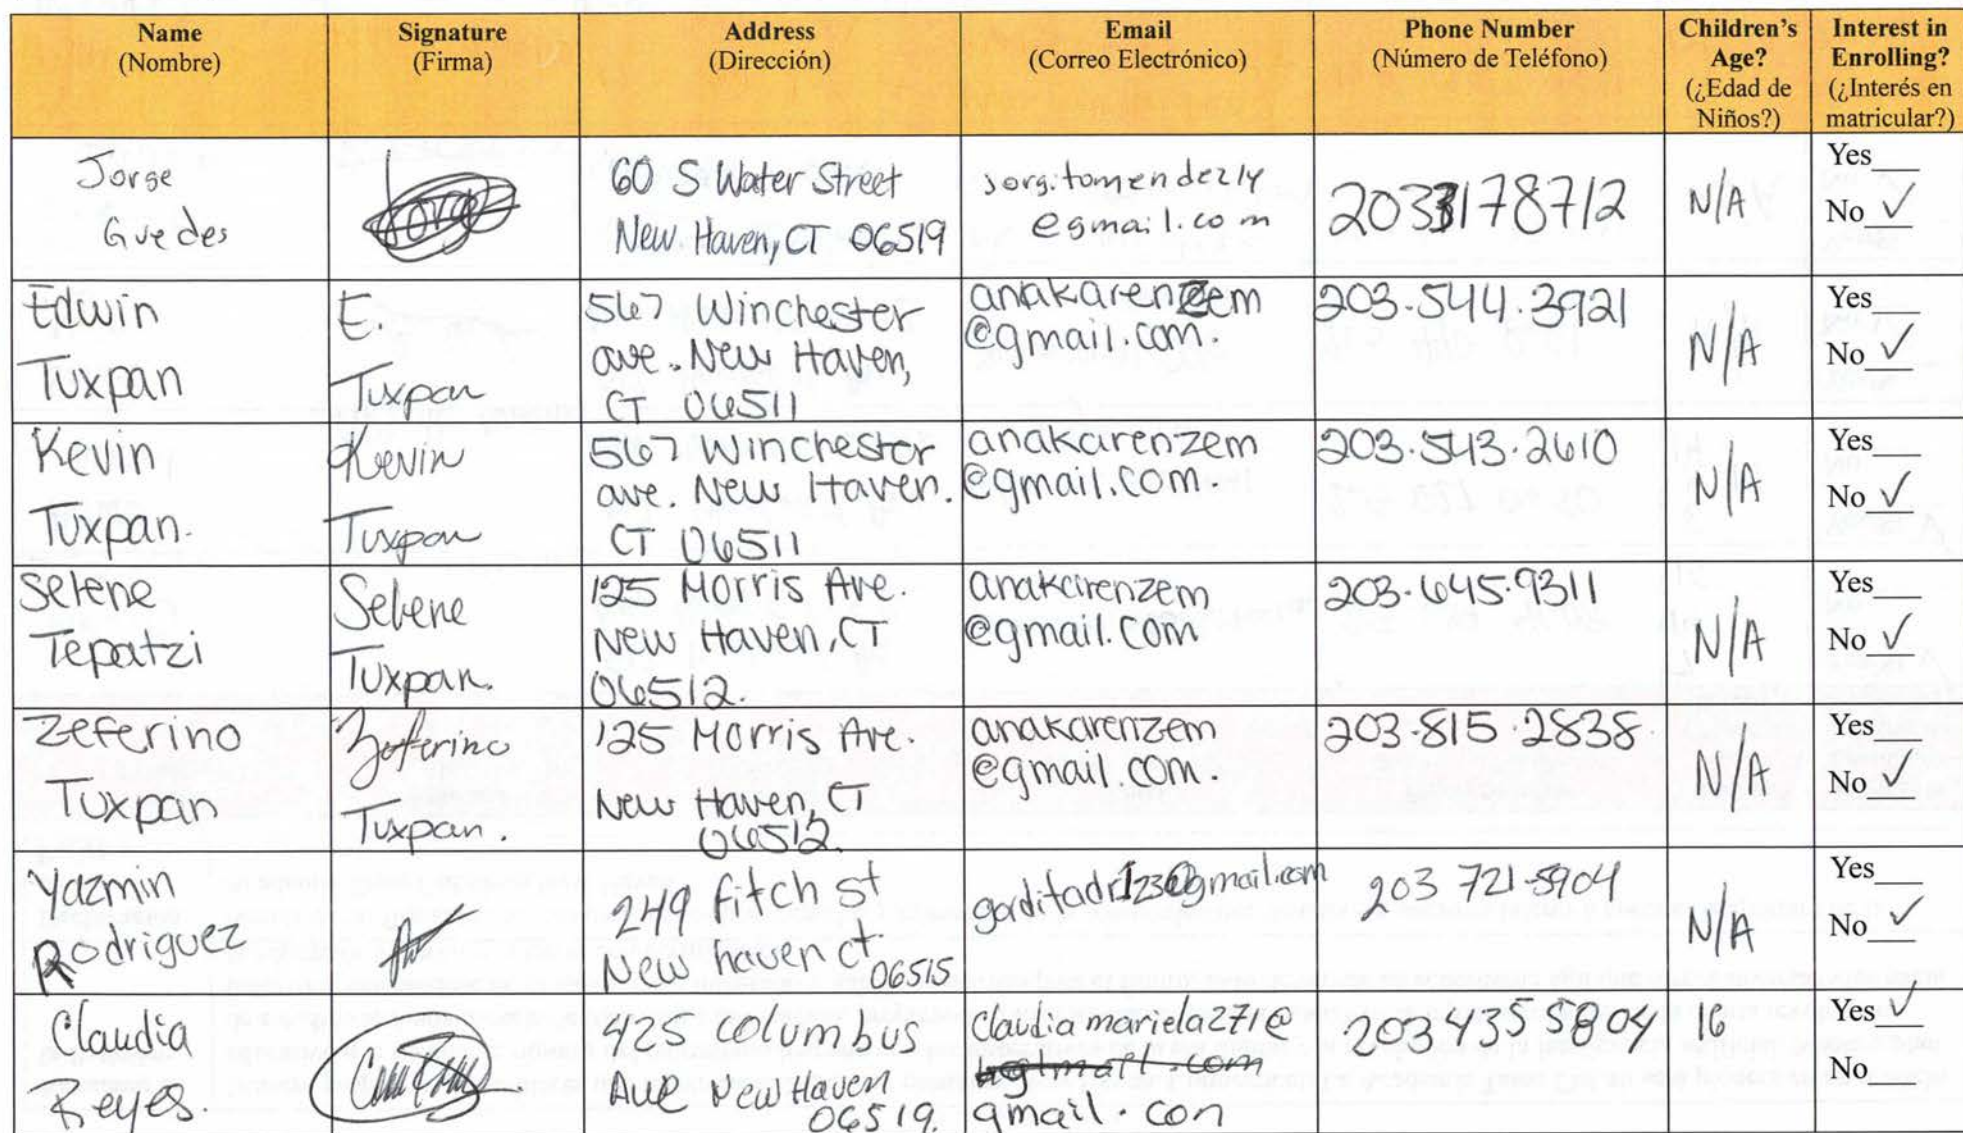 Name Signature Address Email Phone Number Children's Interest in
(Nombre) (Firma) (Dirección) (Correo Electrónico) (Número de Teléfono) Age? Enrolling?
(¿Edad de (¿Interés en
Niños?) matricular?)
Jorge
Guedes
60 S Water Street
New Haven, CT 06519
jorgitomendezly
@gmail.com
2033178712
N/A
Yes
No ✓
Edwin
Tuxpan
E.
Tuxpan
567 Winchester
ave. New Haven,
CT 06511
anakarenzem
@gmail.com.
203.544.3921
N/A
Yes
No ✓
Kevin
Tuxpan.
Kevin
Tuxpan
567 Winchester
ave. New Haven.
CT 06511
anakarenzem
@gmail.com.
203.543.2610
N/A
Yes
No ✓
Selene
Tepatzi
Selene
Tuxpan.
125 Morris Ave.
New Haven, CT
06512.
anakarenzem
@gmail.com
203.645.9311
N/A
Yes
No ✓
Zeferino
Tuxpan
Zeferino
Tuxpan.
125 Morris Ave.
New Haven, CT
06512.
anakarenzem
@gmail.com.
203.815.2838.
N/A
Yes
No ✓
Yazmin
Rodriguez
249 fitch st
New haven ct
06515
gorditadr123@gmail.com
203 721-5904
N/A
Yes
No ✓
Claudia
Reyes.
425 columbus
AVE New Haven
06519.
Claudia mariela271@
gmail.con
203 435 5804
16
Yes ✓
No